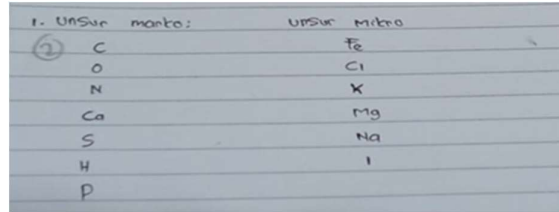 1. Unsur makro: Unsur mikro
② C Fe
O Cl
N K
Ca Mg
S Na
H I
P